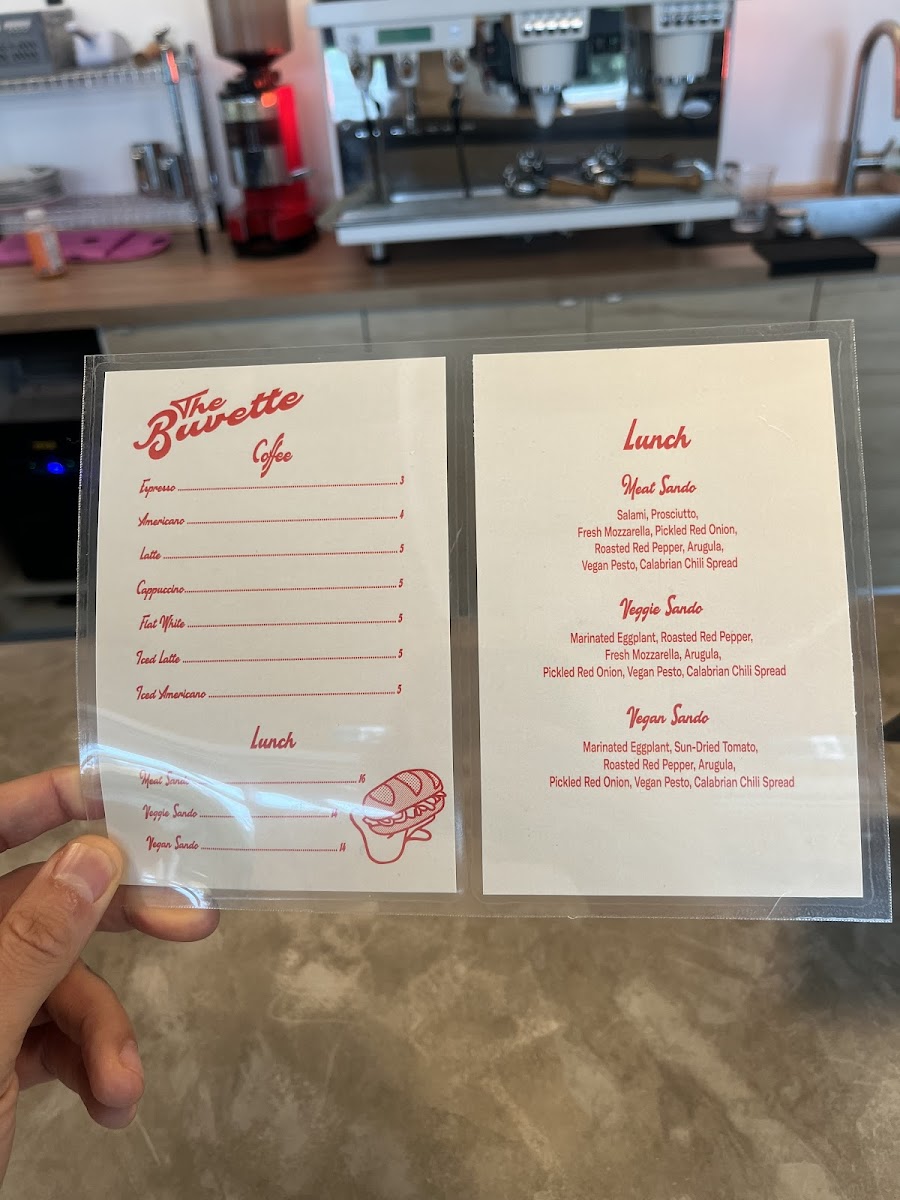 The
Buvette
Coffee
Espresso 3
Americano 4
Latte 5
Cappuccino 5
Flat White 5
Iced Latte 5
Iced Americano 5
Lunch
Meat Sando 16
Veggie Sando 14
Vegan Sando 14
Lunch
Meat Sando
Salami, Prosciutto,
Fresh Mozzarella, Pickled Red Onion,
Roasted Red Pepper, Arugula,
Vegan Pesto, Calabrian Chili Spread
Veggie Sando
Marinated Eggplant, Roasted Red Pepper,
Fresh Mozzarella, Arugula,
Pickled Red Onion, Vegan Pesto, Calabrian Chili Spread
Vegan Sando
Marinated Eggplant, Sun-Dried Tomato,
Roasted Red Pepper, Arugula,
Pickled Red Onion, Vegan Pesto, Calabrian Chili Spread